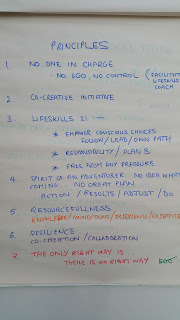 PRINCIPLES
1 NO ONE IN CHARGE
- NO EGO, NO CONTROL (FACILITAT
LIFESKILLS
COACH
2 CO-CREATIVE INITIATIVE
3 LIFESKILLS 21
* EMPOWER CONSCIOUS CHOICES
FOLLOW / LEAD / OWN PATH
* RESPONSIBILITY / PLAN B
* FREE FROM ANY PRESSURE
4 SPIRIT OF AN ADVENTURER NO IDEA WHAT
COMING.. NO GREAT PLAN
ACTION / RESULTS / ADJUST / DO
5 RESOURCEFULLNESS
KNOWLEDGE / CONNECTIONS / EXPERIENCE /
6 RESILIENCE
CO-CREATION / COLLABORATION
7 THE ONLY RIGHT WAY IS
THERE IS NO RIGHT WAY